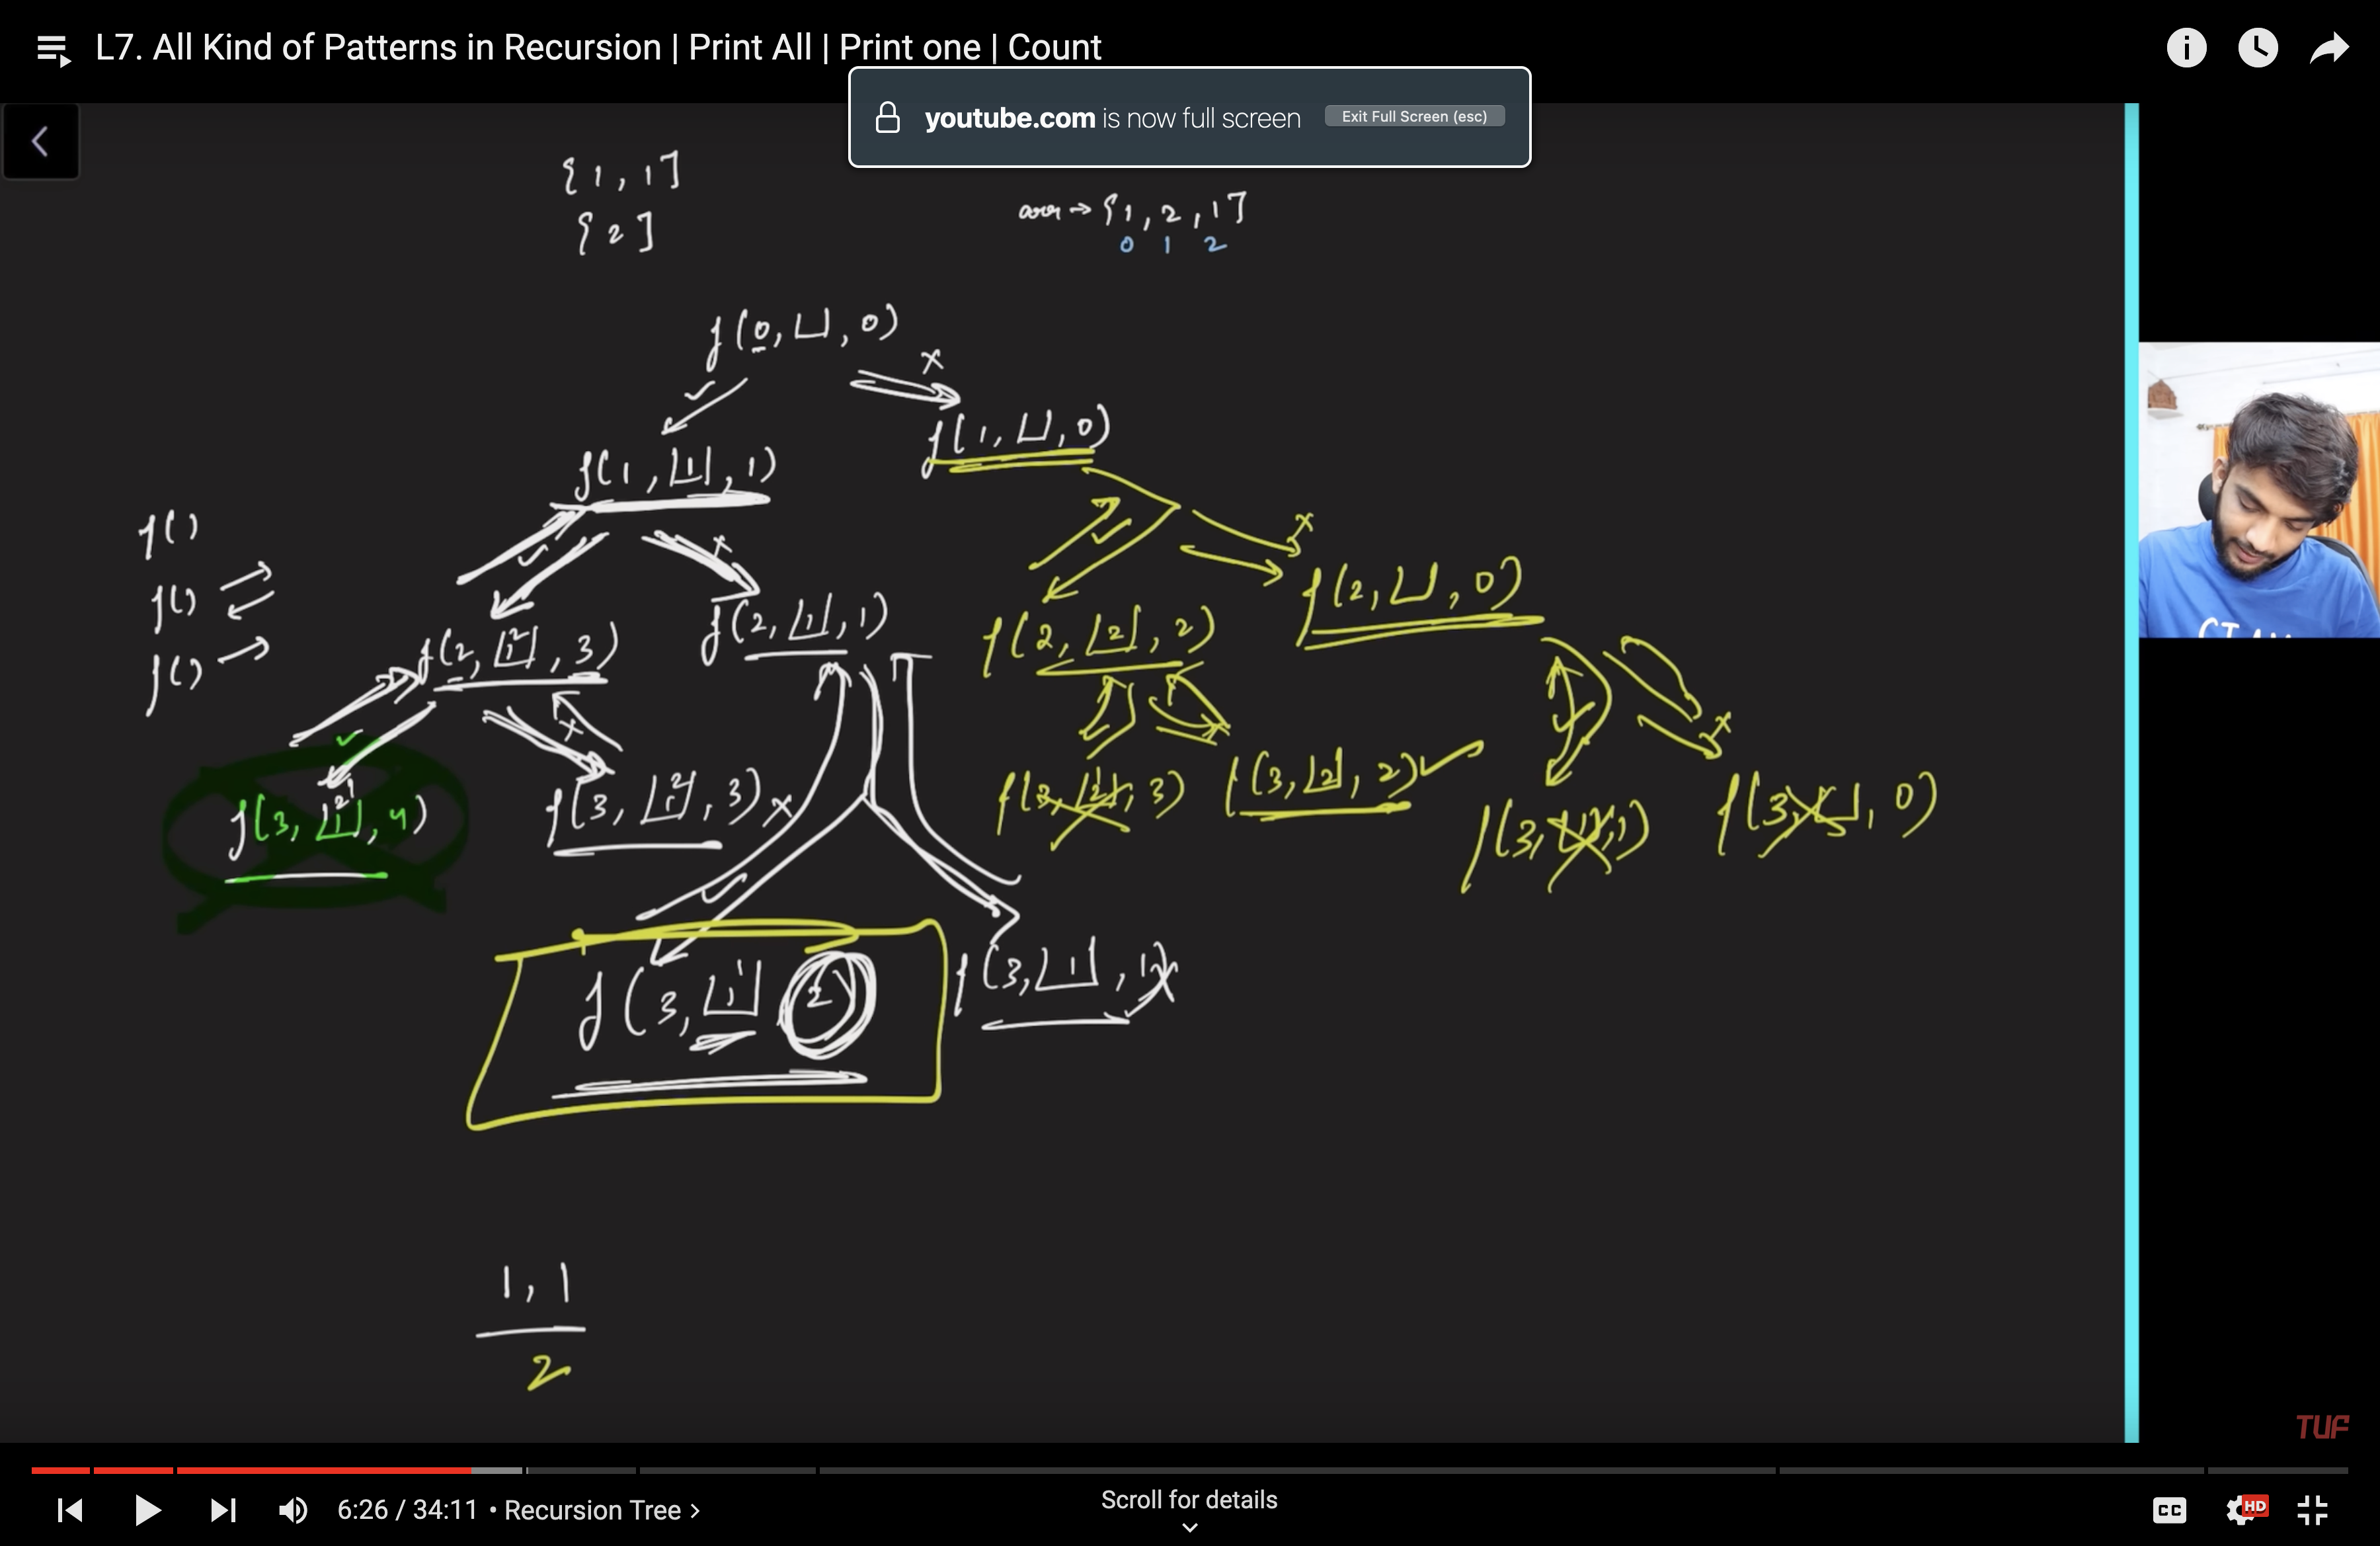 L7. All Kind of Patterns in Recursion | Print All | Print one | Count
youtube.com is now full screen
Exit Full Screen (esc)
{1, 1}
{2}
arr → {1, 2, 1}
0 1 2
f(0, [], 0)
✓ x
f(1, [1], 1) f(1, [], 0)
✓ x ✓ x
f()
f()
f()
f(2, [1 2], 3) f(2, [1], 1) f(2, [2], 2) f(2, [], 0)
✓ x ✓ x
f(3, [1 2 1], 4) f(3, [1 2], 3) x f(3, [2 1], 3) f(3, [2], 2) ✓ f(3, [1], 1) f(3, [], 0)
✓
f(3, [1 1], 2) f(3, [1], 1) x
1, 1
2
TUF
6:26 / 34:11 • Recursion Tree >
Scroll for details
CC
HD